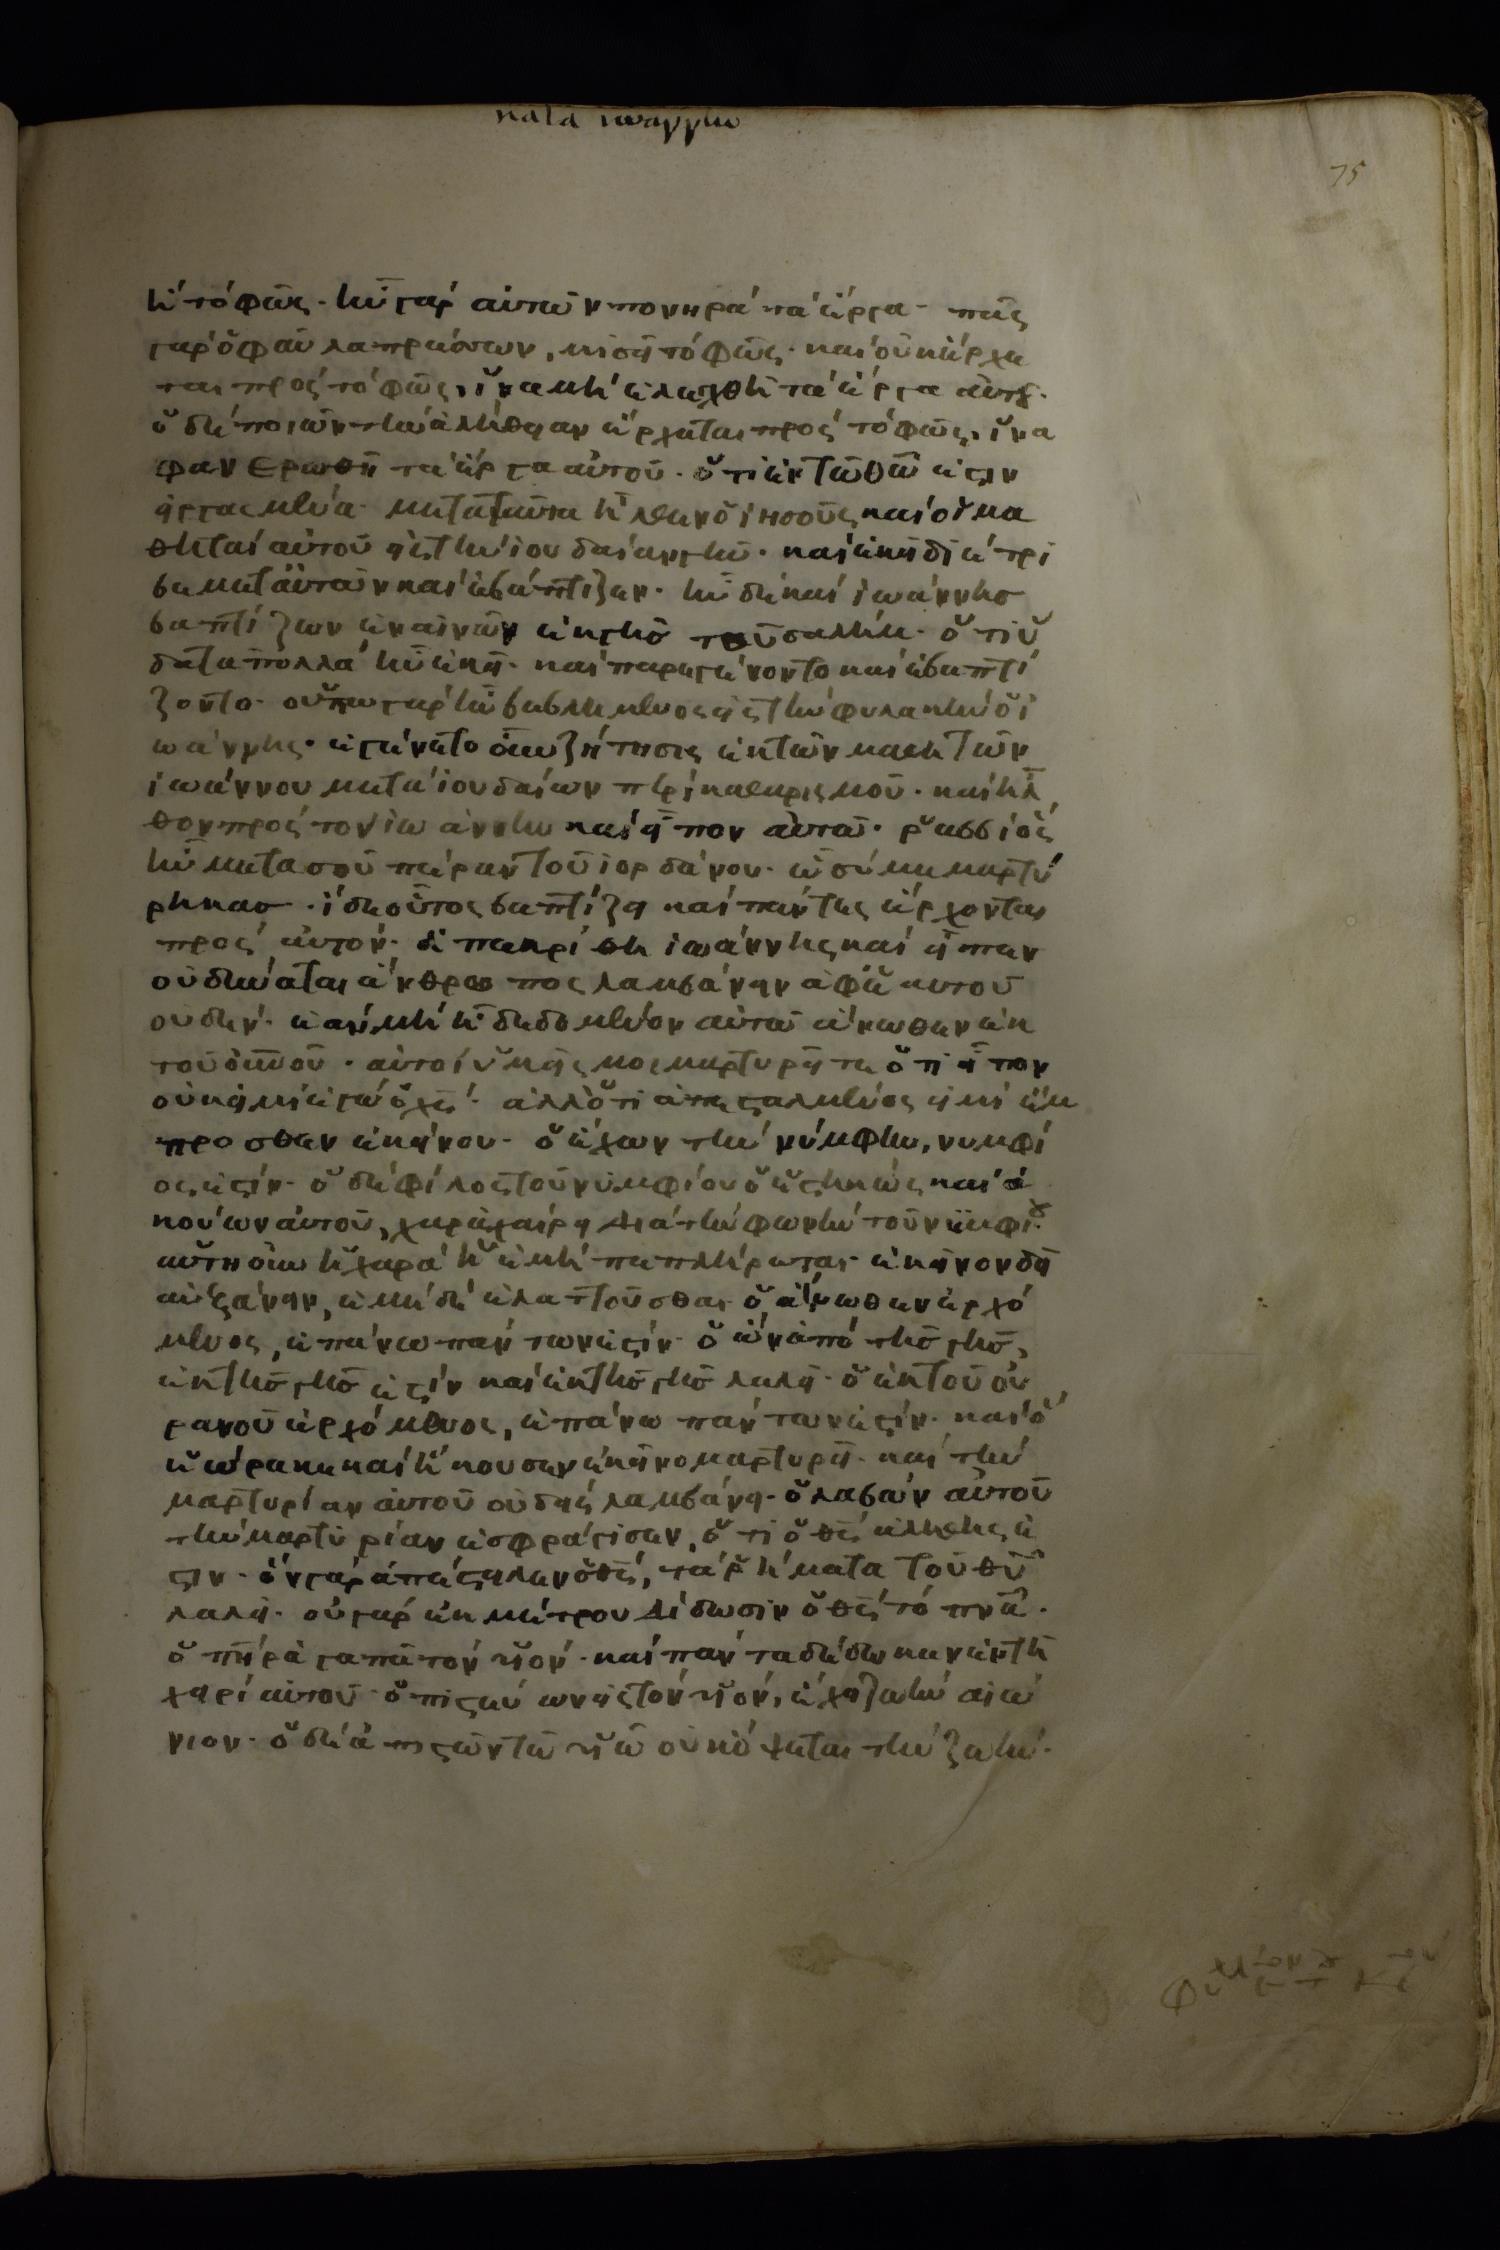 κατα ιωαννην
75
ἢ τὸ φῶς· ἦν γὰρ αὐτῶν πονηρὰ τὰ ἔργα· πᾶς
γὰρ ὁ φαῦλα πράσσων, μισεῖ τὸ φῶς· καὶ οὐκ ἔρχε
ται πρὸς τὸ φῶς, ἵνα μὴ ἐλεγχθῆ τὰ ἔργα αὐτοῦ·
ὁ δὲ ποιῶν τὴν ἀλήθειαν ἔρχεται πρὸς τὸ φῶς, ἵνα
φανερωθῆ τὰ ἔργα αὐτοῦ· ὅτι ἐν τῶ θῶ ἐστιν
εἰργασμένα· μετὰ ταῦτα ἦλθεν ὁ ἰησοῦς καὶ οἱ μα
θηταὶ αὐτοῦ εἰς τὴν ἰουδαίαν γῆν· καὶ ἐκεῖ διέτρι
βε μετ αὐτῶν καὶ ἐβάπτιζεν· ἦν δὲ καὶ ἰωάννης
βαπτίζων ἐν αἰνῶν ἐγγὺς τοῦ σαλήμ· ὅτι ὕ
δατα πολλὰ ἦν ἐκεῖ· καὶ παρεγένοντο καὶ ἐβαπτί
ζοντο· οὔπω γὰρ ἦν βεβλημένος εἰς τὴν φυλακὴν ὁ ἰ
ωάννης· ἐγένετο οὖν ζήτησις ἐκ τῶν μαθητῶν
ἰωάννου μετὰ ἰουδαίων περὶ καθαρισμοῦ· καὶ ἦλ
θον πρὸς τὸν ἰωάννην καὶ εἶπον αὐτῶ· ῥαββὶ ὃς
ἦν μετὰ σοῦ πέραν τοῦ ἰορδάνου· ὧ σὺ μεμαρτύ
ρηκας· ἴδε οὗτος βαπτίζει καὶ πάντες ἔρχονται
πρὸς αὐτόν· ἀπεκρίθη ἰωάννης καὶ εἶπεν
οὐ δύναται ἄνθρωπος λαμβάνειν ἀφ ἑαυτοῦ
οὐδέν· ἐὰν μὴ ἦ δεδομένον αὐτῶ ἄνωθεν ἐκ
τοῦ οὐνοῦ· αὐτοὶ ὑμεῖς μοι μαρτυρεῖτε ὅτι εἶπον
οὐκ εἰμὶ ἐγὼ ὁ χς· ἀλλ ὅτι ἀπεσταλμένος εἰμὶ ἔμ
προσθεν ἐκείνου· ὁ ἔχων τὴν νύμφην, νυμφί
ος ἐστίν· ὁ δὲ φίλος τοῦ νυμφίου ὁ ἑστηκὼς καὶ ἀ
κούων αὐτοῦ, χαρᾶ χαίρει διὰ τὴν φωνὴν τοῦ νυμφίου·
αὕτη οὖν ἡ χαρὰ ἡ ἐμὴ πεπλήρωται· ἐκεῖνον δεῖ
αὐξάνειν, ἐμὲ δὲ ἐλαττοῦσθαι· ὁ ἄνωθεν ἐρχό
μενος, ἐπάνω πάντων ἐστίν· ὁ ὢν ἀπὸ τῆς γῆς,
ἐκ τῆς γῆς ἐστὶν καὶ ἐκ τῆς γῆς λαλεῖ· ὁ ἐκ τοῦ οὐ
ρανοῦ ἐρχόμενος, ἐπάνω πάντων ἐστίν· καὶ ὃ
ἑώρακε καὶ ἤκουσεν ἐκεῖνο μαρτυρεῖ· καὶ τὴν
μαρτυρίαν αὐτοῦ οὐδεὶς λαμβάνει· ὁ λαβὼν αὐτοῦ
τὴν μαρτυρίαν ἐσφράγισεν, ὅτι ὁ θς ἀληθής ἐ
στιν· ὃν γὰρ ἀπέστειλεν ὁ θς, τὰ ῥήματα τοῦ θυ
λαλεῖ· οὐ γὰρ ἐκ μέτρου δίδωσιν ὁ θς τὸ πνα·
ὁ πηρ ἀγαπᾶ τὸν υἱόν· καὶ πάντα δέδωκεν ἐν τῆ
χειρὶ αὐτοῦ· ὁ πιστεύων εἰς τὸν υἱόν, ἔχει ζωὴν αἰώ
νιον· ὁ δὲ ἀπιστῶν τῶ υἱῶ οὐκ ὄψεται τὴν ζωήν·